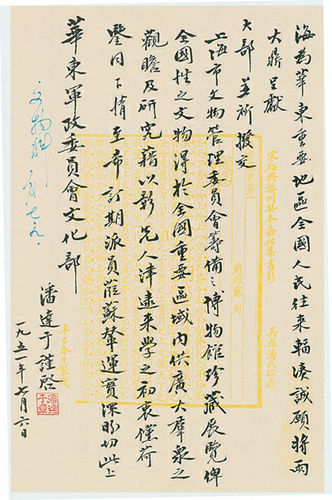 海为華東重要地區全國人民往来輻湊誠願將兩
大鼎呈獻
大部并祈撥交
上海市文物管理委員會籌備之博物館珍藏展覽俾
全國性之文物得於全國重要區域内供廣大羣衆之
觀瞻及研究藉以彰先人津逮来學之初衷僅荷
鑒同下情至希訂期派員蒞蘇輦運實深盼切此上
華東軍政委員會文化部
潘達于謹啓
一九五一年七月六日